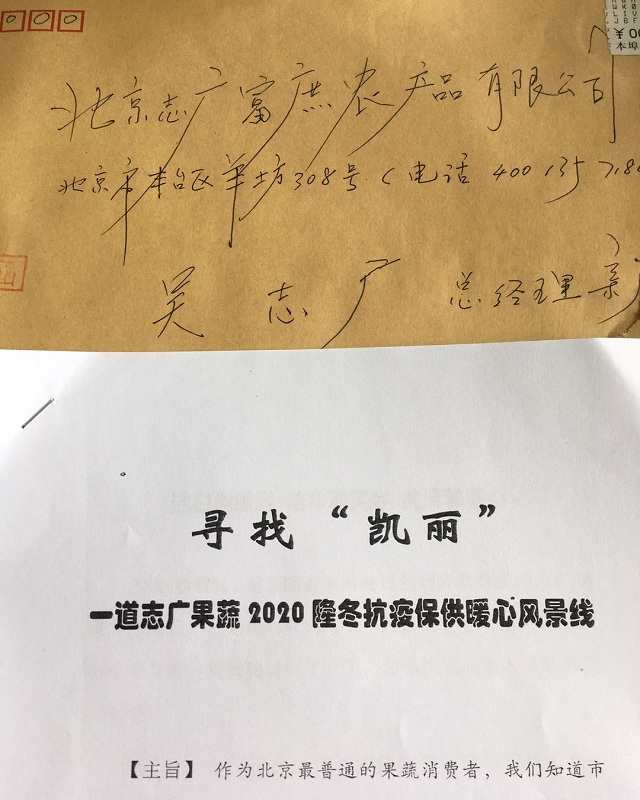 北京志广富庶农产品有限公司
北京市丰台区羊坊308号(电话 400 135 718
吴志广 总经理 亲
寻找“凯丽”
一道志广果蔬2020隆冬抗疫保供暖心风景线
【主旨】 作为北京最普通的果蔬消费者,我们知道市